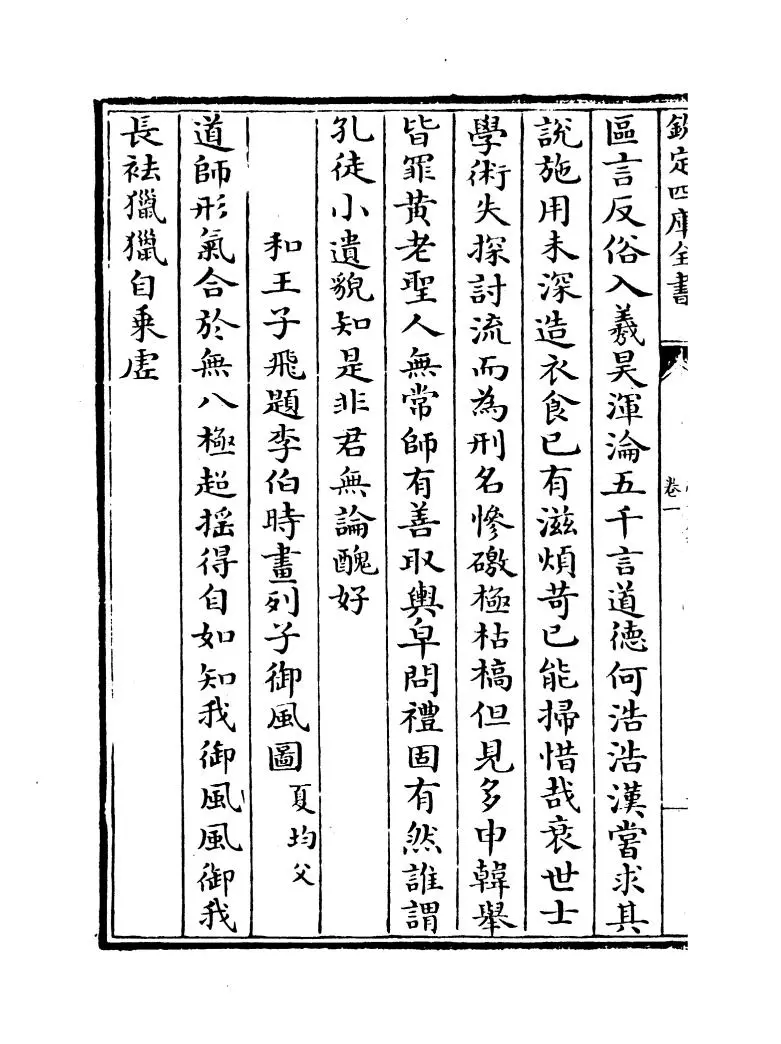 欽定四庫全書
卷一
區言反俗入羲昊渾淪五千言道德何浩浩漢嘗求其
說施用未深造衣食已有滋煩苛已能掃惜哉衰世士
學術失探討流而為刑名慘礉極枯槁但見多申韓舉
皆罪黃老聖人無常師有善取輿皁問禮固有然誰謂
孔徒小遺貌知是非君無論醜好
和王子飛題李伯時畫列子御風圖 夏均父
道師形氣合於無八極超揺得自如知我御風風御我
長袪獵獵自乗虛